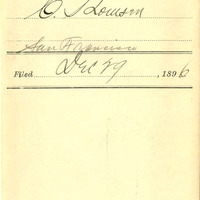 C. Thomson
San Francisco
Filed Dec 29, 1896